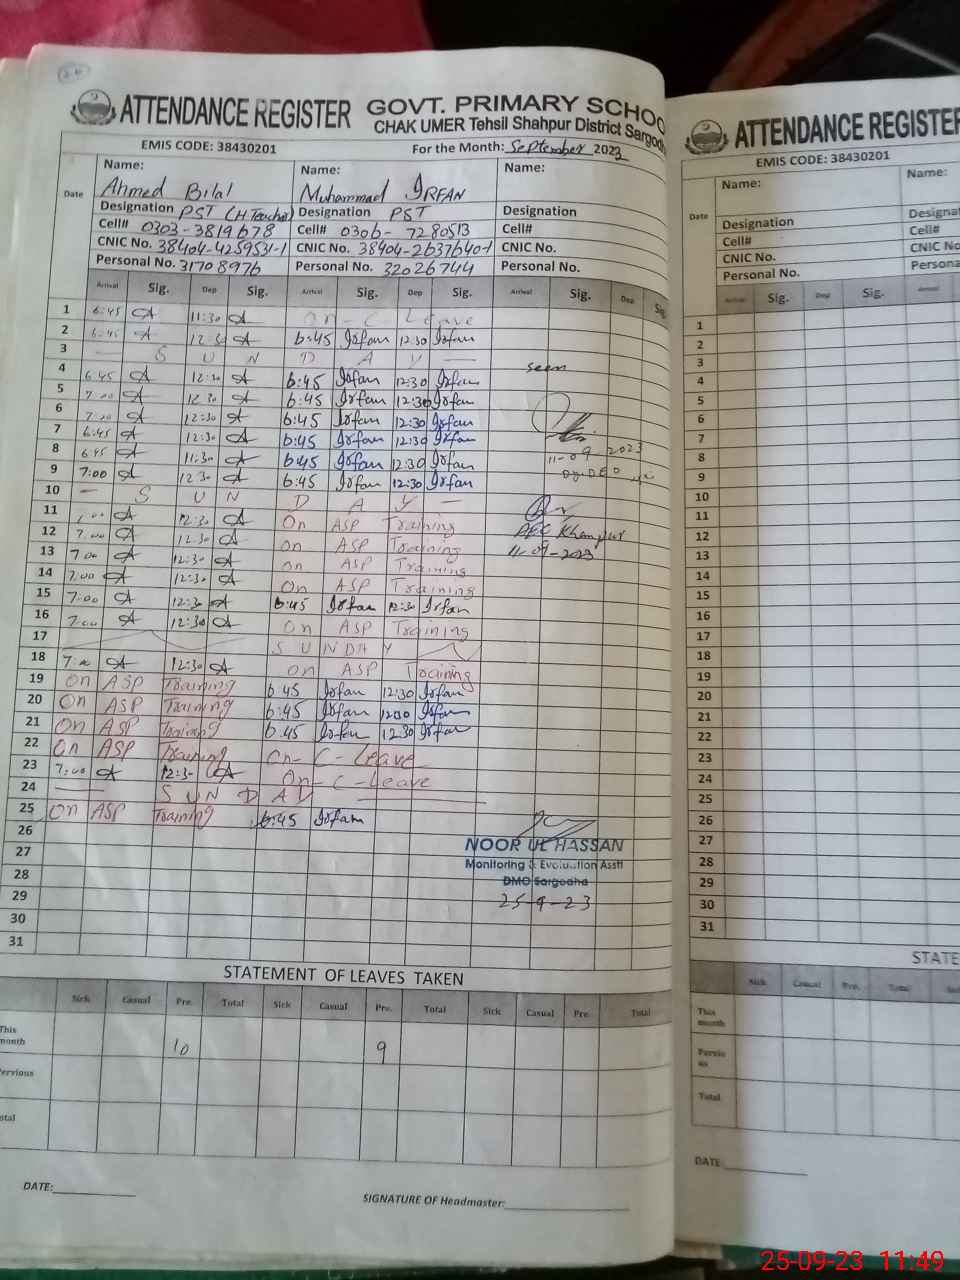 ATTENDANCE REGISTER GOVT. PRIMARY SCHOO
CHAK UMER Tehsil Shahpur District Sargod
EMIS CODE: 38430201 For the Month: September 2023
Date Name: Ahmed Bilal Name: Muhammad IRFAN Name:
Designation PST (H.Teacher) Designation PST Designation
Cell# 0303-3819678 Cell# 0306-7280513 Cell#
CNIC No. 38404-425953-1 CNIC No. 38404-2637640-1 CNIC No.
Personal No. 31708976 Personal No. 32026744 Personal No.
Arrival Sig. Dep Sig. Arrival Sig. Dep Sig. Arrival Sig. Dep Sig
1 6:45 11:30 On - C Leave
2 6:45 12:30 6:45 Irfan 12:30 Irfan
3 — S U N D A Y —
4 6:45 12:30 6:45 Irfan 12:30 Irfan seen
5 7:00 12:30 6:45 Irfan 12:30 Irfan
6 7:00 12:30 6:45 Irfan 12:30 Irfan
7 6:45 12:30 6:45 Irfan 12:30 Irfan
8 6:45 11:30 6:45 Irfan 12:30 Irfan 11-09-2023
9 7:00 12:30 6:45 Irfan 12:30 Irfan
10 — S U N D A Y —
11 7:00 12:30 On ASP Training
12 7:00 12:30 On ASP Training 11-09-2023
13 7:00 12:30 On ASP Training
14 7:00 12:30 On ASP Training
15 7:00 12:30 6:45 Irfan 12:30 Irfan
16 7:00 12:30 On ASP Training
17 SUNDAY
18 7:00 12:30 On ASP Training
19 On ASP Training 6:45 Irfan 12:30 Irfan
20 On ASP Training 6:45 Irfan 12:30 Irfan
21 On ASP Training 6:45 Irfan 12:30 Irfan
22 On ASP Training On - C - Leave
23 7:00 12:30 On - C - Leave
24 — S U N D A D —
25 On ASP Training 6:45 Irfan
26
NOOR UL HASSAN
27
Monitoring & Evaluation Asstt
28
DMO Sargodha
29 25-9-23
30
31
STATEMENT OF LEAVES TAKEN
Sick Casual Pre. Total Sick Casual Pre. Total Sick Casual Pre. Total
This month 10 9
ervious
otal
DATE:
SIGNATURE OF Headmaster:
ATTENDANCE REGISTER
EMIS CODE: 38430201
Date Name: Name:
Designation Designat
Cell# Cell#
CNIC No. CNIC No
Personal No. Persona
Arrival Sig. Dep Sig. Arrival
1
2
3
4
5
6
7
8
9
10
11
12
13
14
15
16
17
18
19
20
21
22
23
24
25
26
27
28
29
30
31
STATE
Sick Casual Pre. Total
This month
Pervious
Total
DATE:
25-09-23 11:49